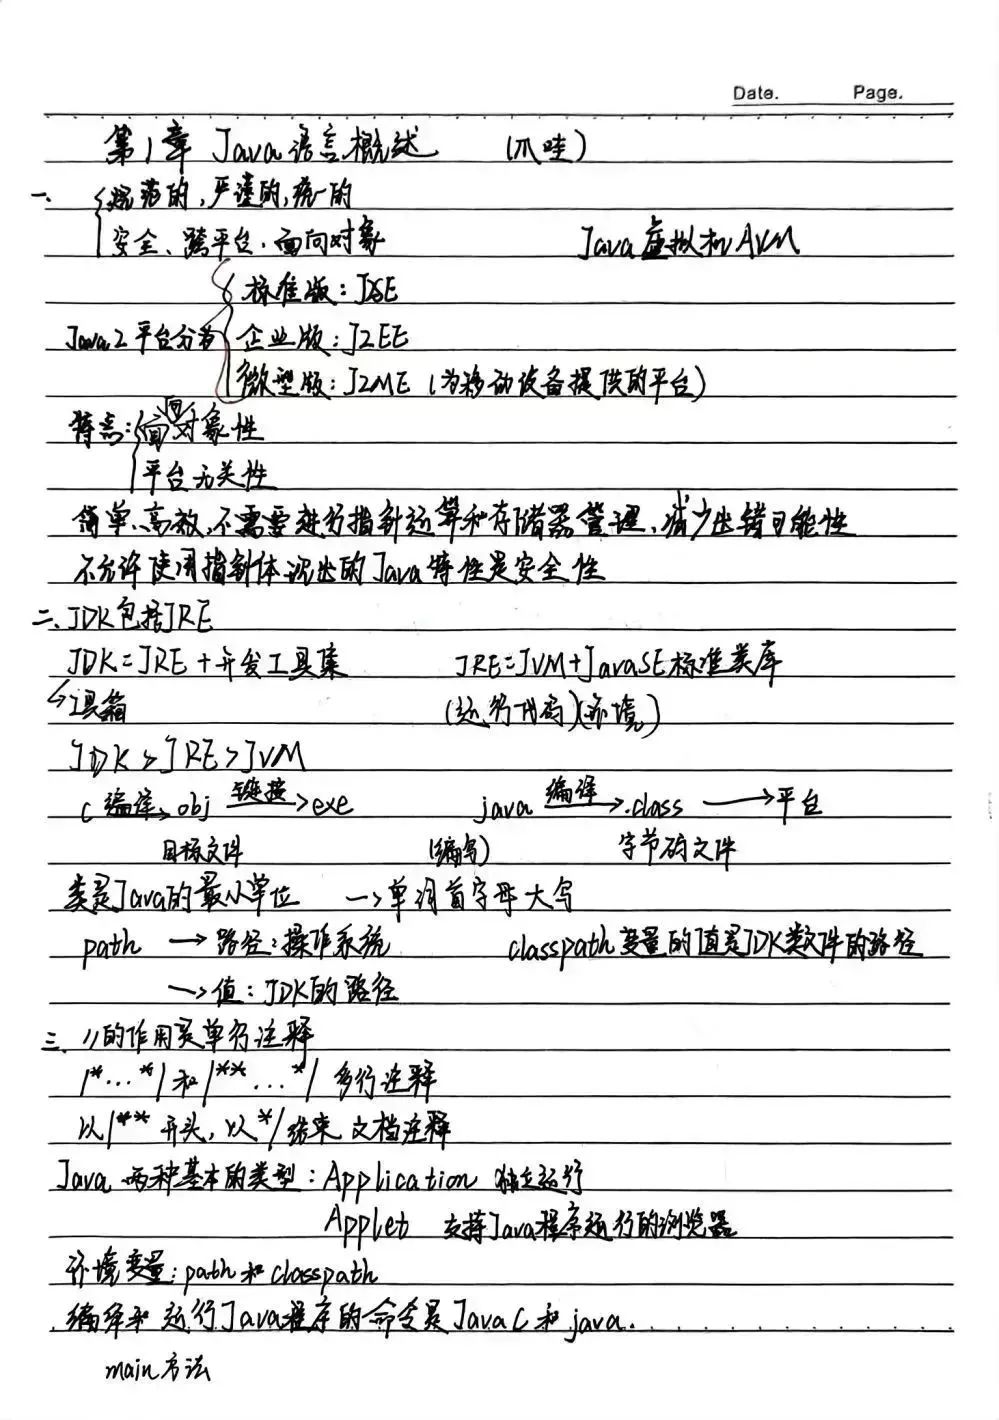 Date. Page.
第1章 Java语言概述 (爪哇)
一、规范的,严谨的,统一的
安全、跨平台、面向对象 Java虚拟机AVM
标准版:J2SE
Java2平台分为 企业版:J2EE
微型版:J2ME (为移动设备提供的平台)
特点:面向对象性
平台无关性
简单、高效,不需要进行指针运算和存储器管理,减少出错可能性
不允许使用指针体现出的Java特性是安全性
二、JDK包括JRE
JDK=JRE+开发工具集 JRE=JVM+JavaSE标准类库
↳工具箱 (运行代码)(环境)
JDK>JRE>JVM
C 编译→ obj 链接→ exe java 编译→ .class → 平台
目标文件 (编写) 字节码文件
类是Java的最小单位 →单词首字母大写
path →路径:操作系统 classpath变量的值是JDK类文件的路径
→值:JDK的路径
三、//的作用是单行注释
/*...*/和/**...*/多行注释
以/**开头,以*/结束 文档注释
Java 两种基本的类型:Application 独立运行
Applet 支持Java程序运行的浏览器
环境变量:path和classpath
编译和运行Java程序的命令是JavaC和java.
main方法